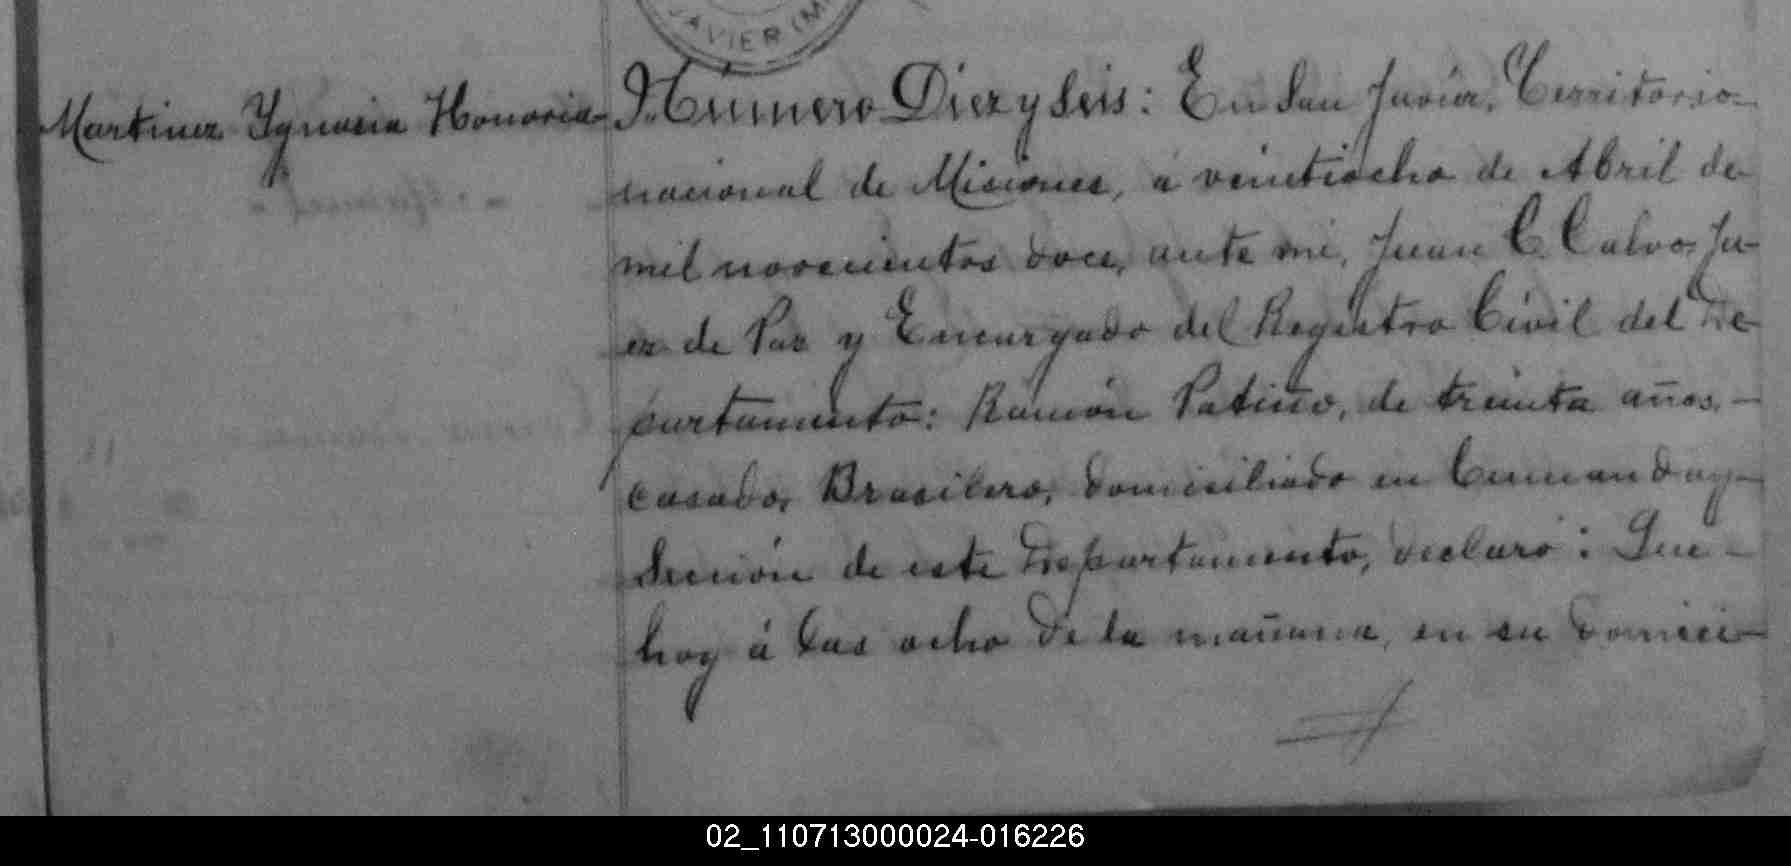 JAVIER (MI
Martinez Ygnacia Honoria-
Número Diez y Seis: En San Javier, Territorio-
nacional de Misiones, á veintiocho de Abril de
mil novecientos doce, ante mi, Juan C. Calvo, Ju-
ez de Paz y Encargado del Registro Civil del De-
partamento: Ramón Patiño, de treinta años,-
casado, Brasilero, domisiliado en Cumanday-
Sección de este Departamento, declaró: Que-
hoy á las ocho de la mañana, en su domici-
02_110713000024-016226